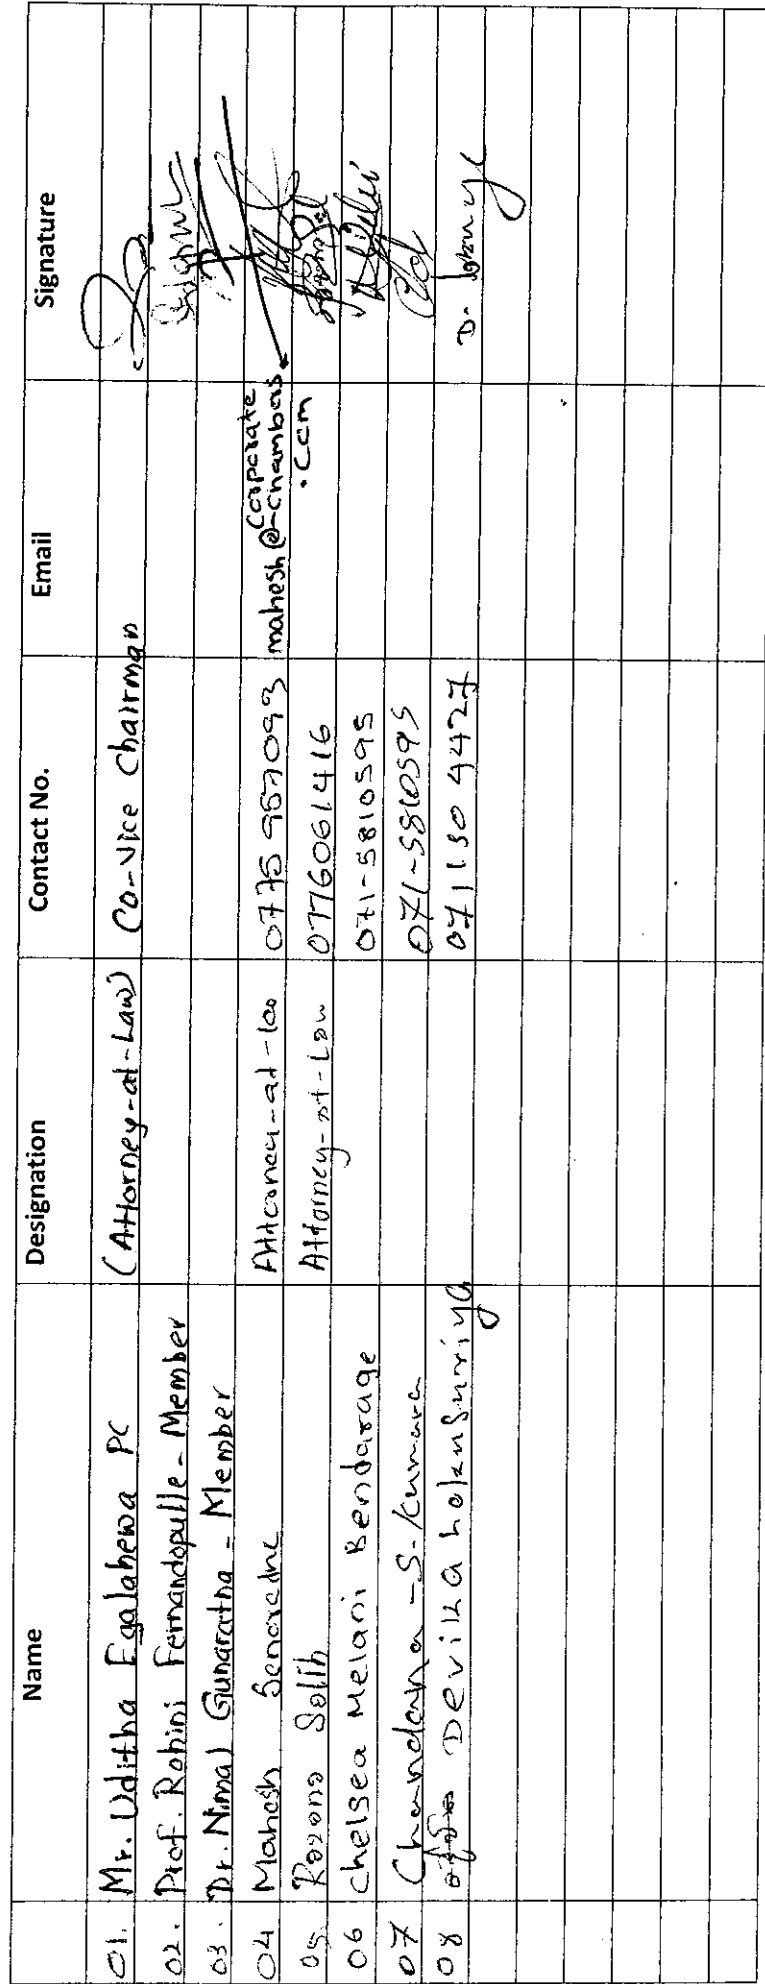 Name Designation Contact No. Email Signature
01. Mr. Uditha Egalahewa PC (Attorney-at-Law) Co-Vice Chairman
02. Prof. Rohini Fernandopulle - Member
03. Dr. Nimal Gunaratna - Member
04 Mahesh 0775957093 mahesh@corporate-chambers
.com
05. Attorney-at-Law 0776061416
06 Chelsea Melani Bendarage 071-5810595
07 Chandana - S. Kumara 071-5810595
08 Devika Lokusuriya 071130 4427